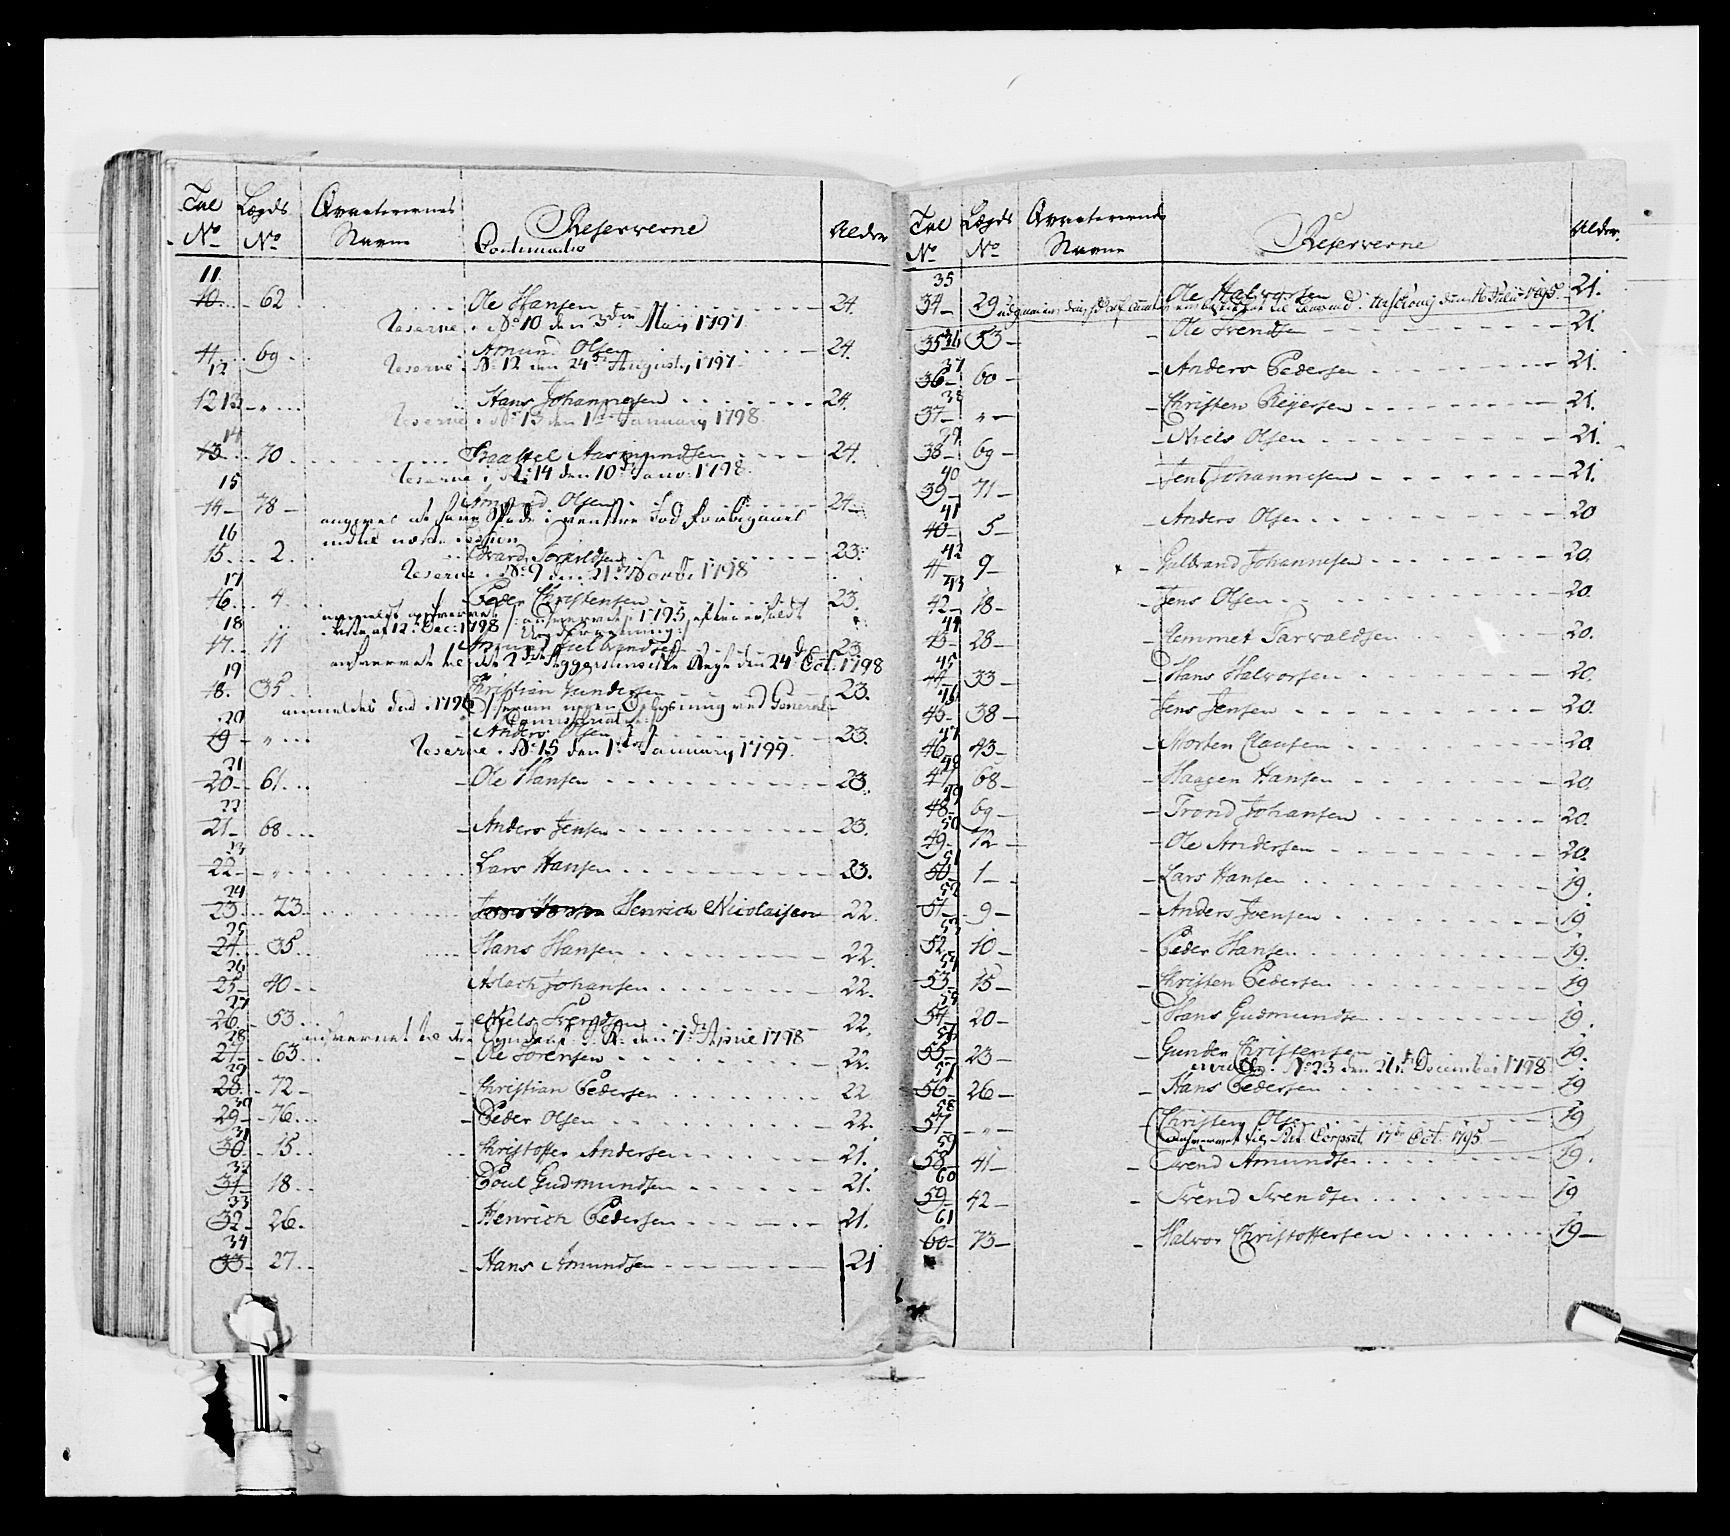 Tal Lægds Qvarterernes Reserverne Alder
No No Navne Continuatio
11
10 62 Ole Hansen 24.
Reserve No 10 den 3die May 1797
11 69 Amund Olsen 24.
12 Reserve No 12 den 24de August 1797
12 13 " Hans Johannesen 24.
Reserve No 13 den 1ste January 1798
14
13 70 Aasmundsen 24.
Reserve No 14 den 10de Janv: 1798
15
14 78 Olsen 24
angives at have Skade i venstre Fod forbigaaet
16 indtil næste Session
15 2. 23.
Reserve No 9 den 21de Novbr 1798
17
16 4 Peder Christensen 23.
18 12 Dec: 1798 1795
17 11 23
den 24de Oct. 1798
19
18. 35 Christian Gundersen 23.
anmeldes død 1796
20
19 " Anders Olsen 23.
Reserve No 15 den 1ste January 1799
21
20 61 Ole Hansen 23.
22
21 68 Anders Jensen 23.
23
22 " Lars Hansen 23.
24
23 23 Henrich Nicolaisen 22.
25
24 35 Hans Hansen 22.
26
25 40 Aslach Johansen 22.
27
26 53 Niels Svendsen 22.
28 den 7de April 1798
27 63 Ole Sørensen 22.
29
28 72 Christian Pedersen 22
30
29 76 Peder Olsen 22.
31
30 15 Christoffer Andersen 21.
32
31 18 Poul Gudmundsen 21.
33
32 26 Henrich Pedersen 21.
34
33 27 Hans Amundsen 21
Tal Lægds Qvarterernes Reserverne Alder.
No No Navne
35
34 29 Ole Halvorsen 21.
1795
35 36 53 Ole Svendsen 21.
37
36 60 Anders Pedersen 21.
38
37 " Christen Reiersen 21.
39
38 69 Niels Olsen 21.
40
39 71 Jens Johannesen 21.
41
40 5 Anders Olsen 20
42
41 9 Gulbrand Johannesen 20.
43
42 18 Jens Olsen 20.
44
43 28 Hemmet Tarvaldsen 20.
45
44 33 Hans Halvorsen 20.
46
45 38 Jens Jensen 20.
47
46 43 Morten Clausen 20
48
47 68 Haagen Hansen 20.
49
48 69 Trond Johansen 20.
50
49 72 Ole Andersen 20.
51
50 1 Lars Hansen 19.
52
51 9 Anders Joensen 19
53
52 10 Peder Hansen 19.
54
53 15 Christen Pedersen 19
55
54 20 Hans Gudmundsen 19.
56
55 23 Gunder Christensen 19.
57 No 23 den 21de December 1798
56 26 Hans Pedersen 19
58
57 " Christen Olsen 19
59 Corpset 17de Oct. 1795
58 41 Svend Amundsen 19.
60
59 42 Svend Svendsen 19
61
60 73 Halvor Christoffersen 19